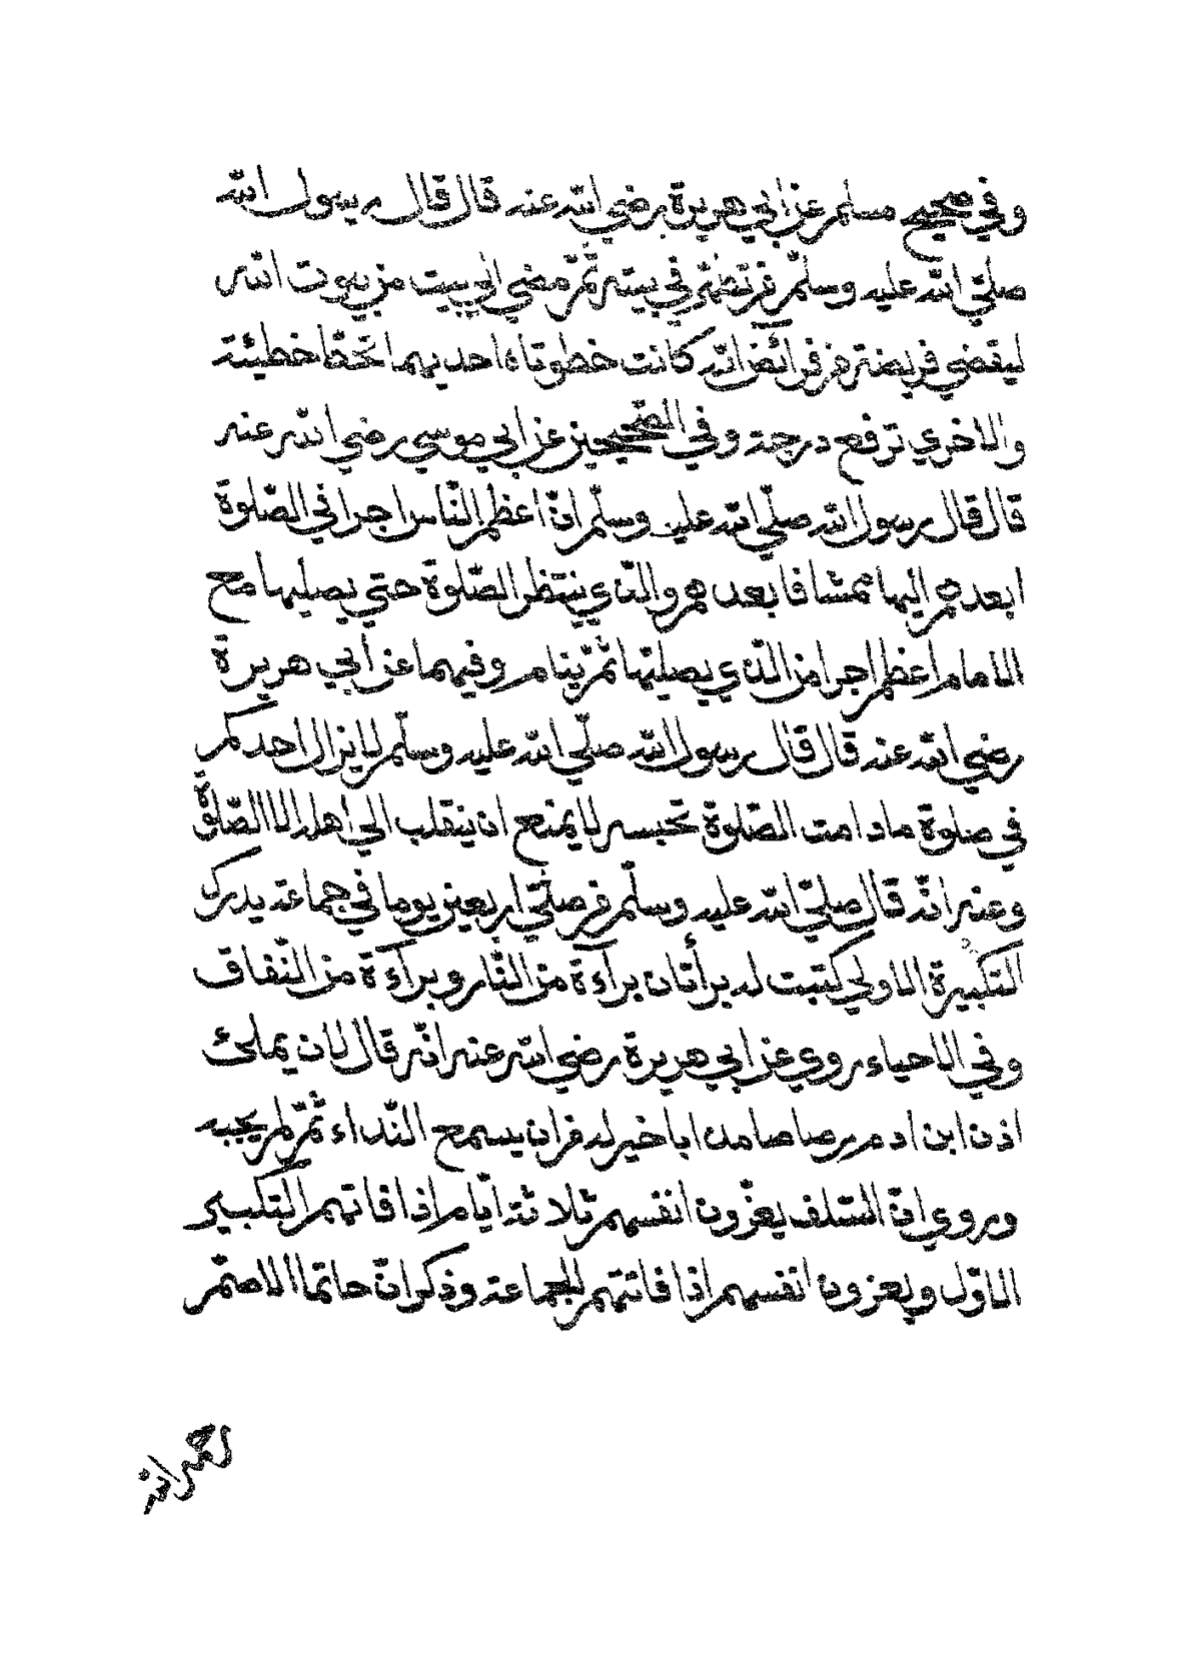 وفي صحيح مسلم عن ابي هريرة رضي الله عنه قال قال رسول الله
صلي الله عليه وسلم من تطهر في بيته ثم مضي الي بيت من بيوت الله
ليقضي فريضة من فرائض الله كانت خطوتاه احديهما تحط خطيئة
والاخري ترفع درجة وفي الصحيحين عن ابي موسي رضي الله عنه
قال قال رسول الله صلّي الله عليه وسلّم انّ اعظم النّاس اجرا في الصّلوة
ابعدهم اليها ممشا فابعدهم والذي ينتظر الصّلوة حتي يصليها مع
الامام اعظم اجرا من الذي يصليها ثمّ ينام وفيهما عن ابي هريرة
رضي الله عنه قال قال رسول الله صلّي الله عليه وسلّم لا يزال احدكم
في صلوة مادامت الصّلوة تحبسه لا يمنع ان ينقلب الي اهله الا الصّلوة
وعنه انّه قال صلّي الله عليه وسلّم من صلّي اربعين يوما في جماعة يدرك
التكبيرة الاولي كتبت له برأتان برآءة من النّار وبرآءة من النّفاق
وفي الاحياء روي عن ابي هريرة رضي الله عنه انّه قال لان يملئ
اذن ابن ادم رصاصا مدابا خير له من ان يسمع النّداء ثمّ لم يجبه
وروي انّ السّلف يعزّون انفسهم ثلاثة ايّام اذا فاتهم التكبير
الاوّل ويعزون انفسهم اذا فاتتهم الجماعة وذكر انّ حاتما الاصمّ